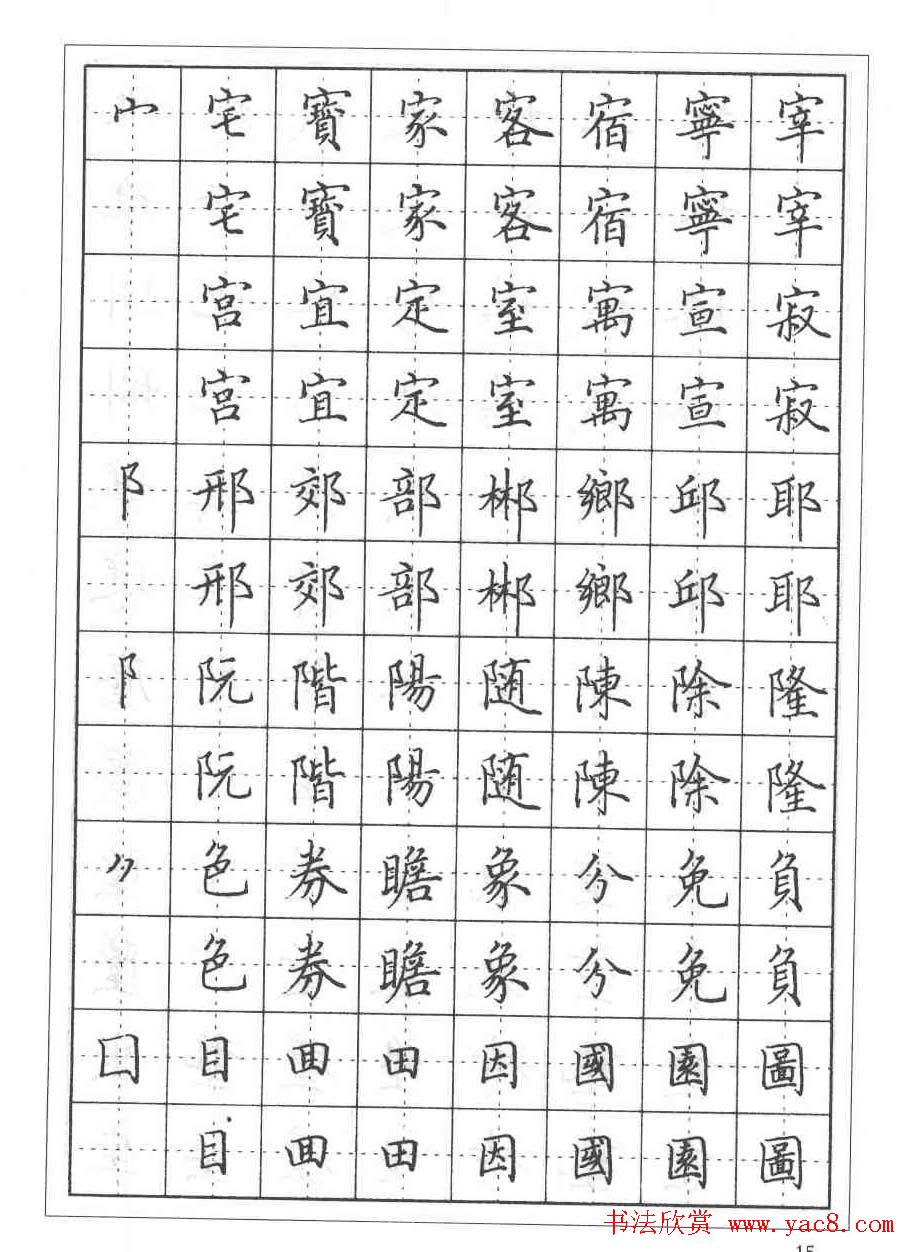 宀宅寶家客宿寧宰
宅寶家客宿寧宰
宮宜定室寓宣寂
宮宜定室寓宣寂
阝邢郊部郴鄉邱耶
邢郊部郴鄉邱耶
阝阮階陽随陳除隆
阮階陽随陳除隆
色券瞻象分免負
色券瞻象分免負
囗目田因國園圖
目田因國園圖
书法欣赏 www.yac8.com
15